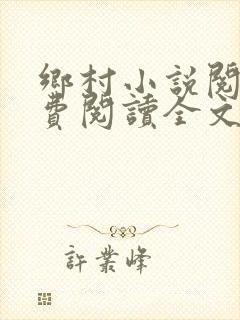 鄉村小說閱
費閱讀全文
許業峰